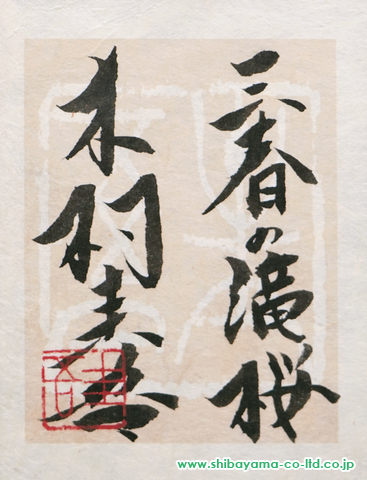 三春の滝桜
木村圭吾
www.shibayama-co-ltd.co.jp